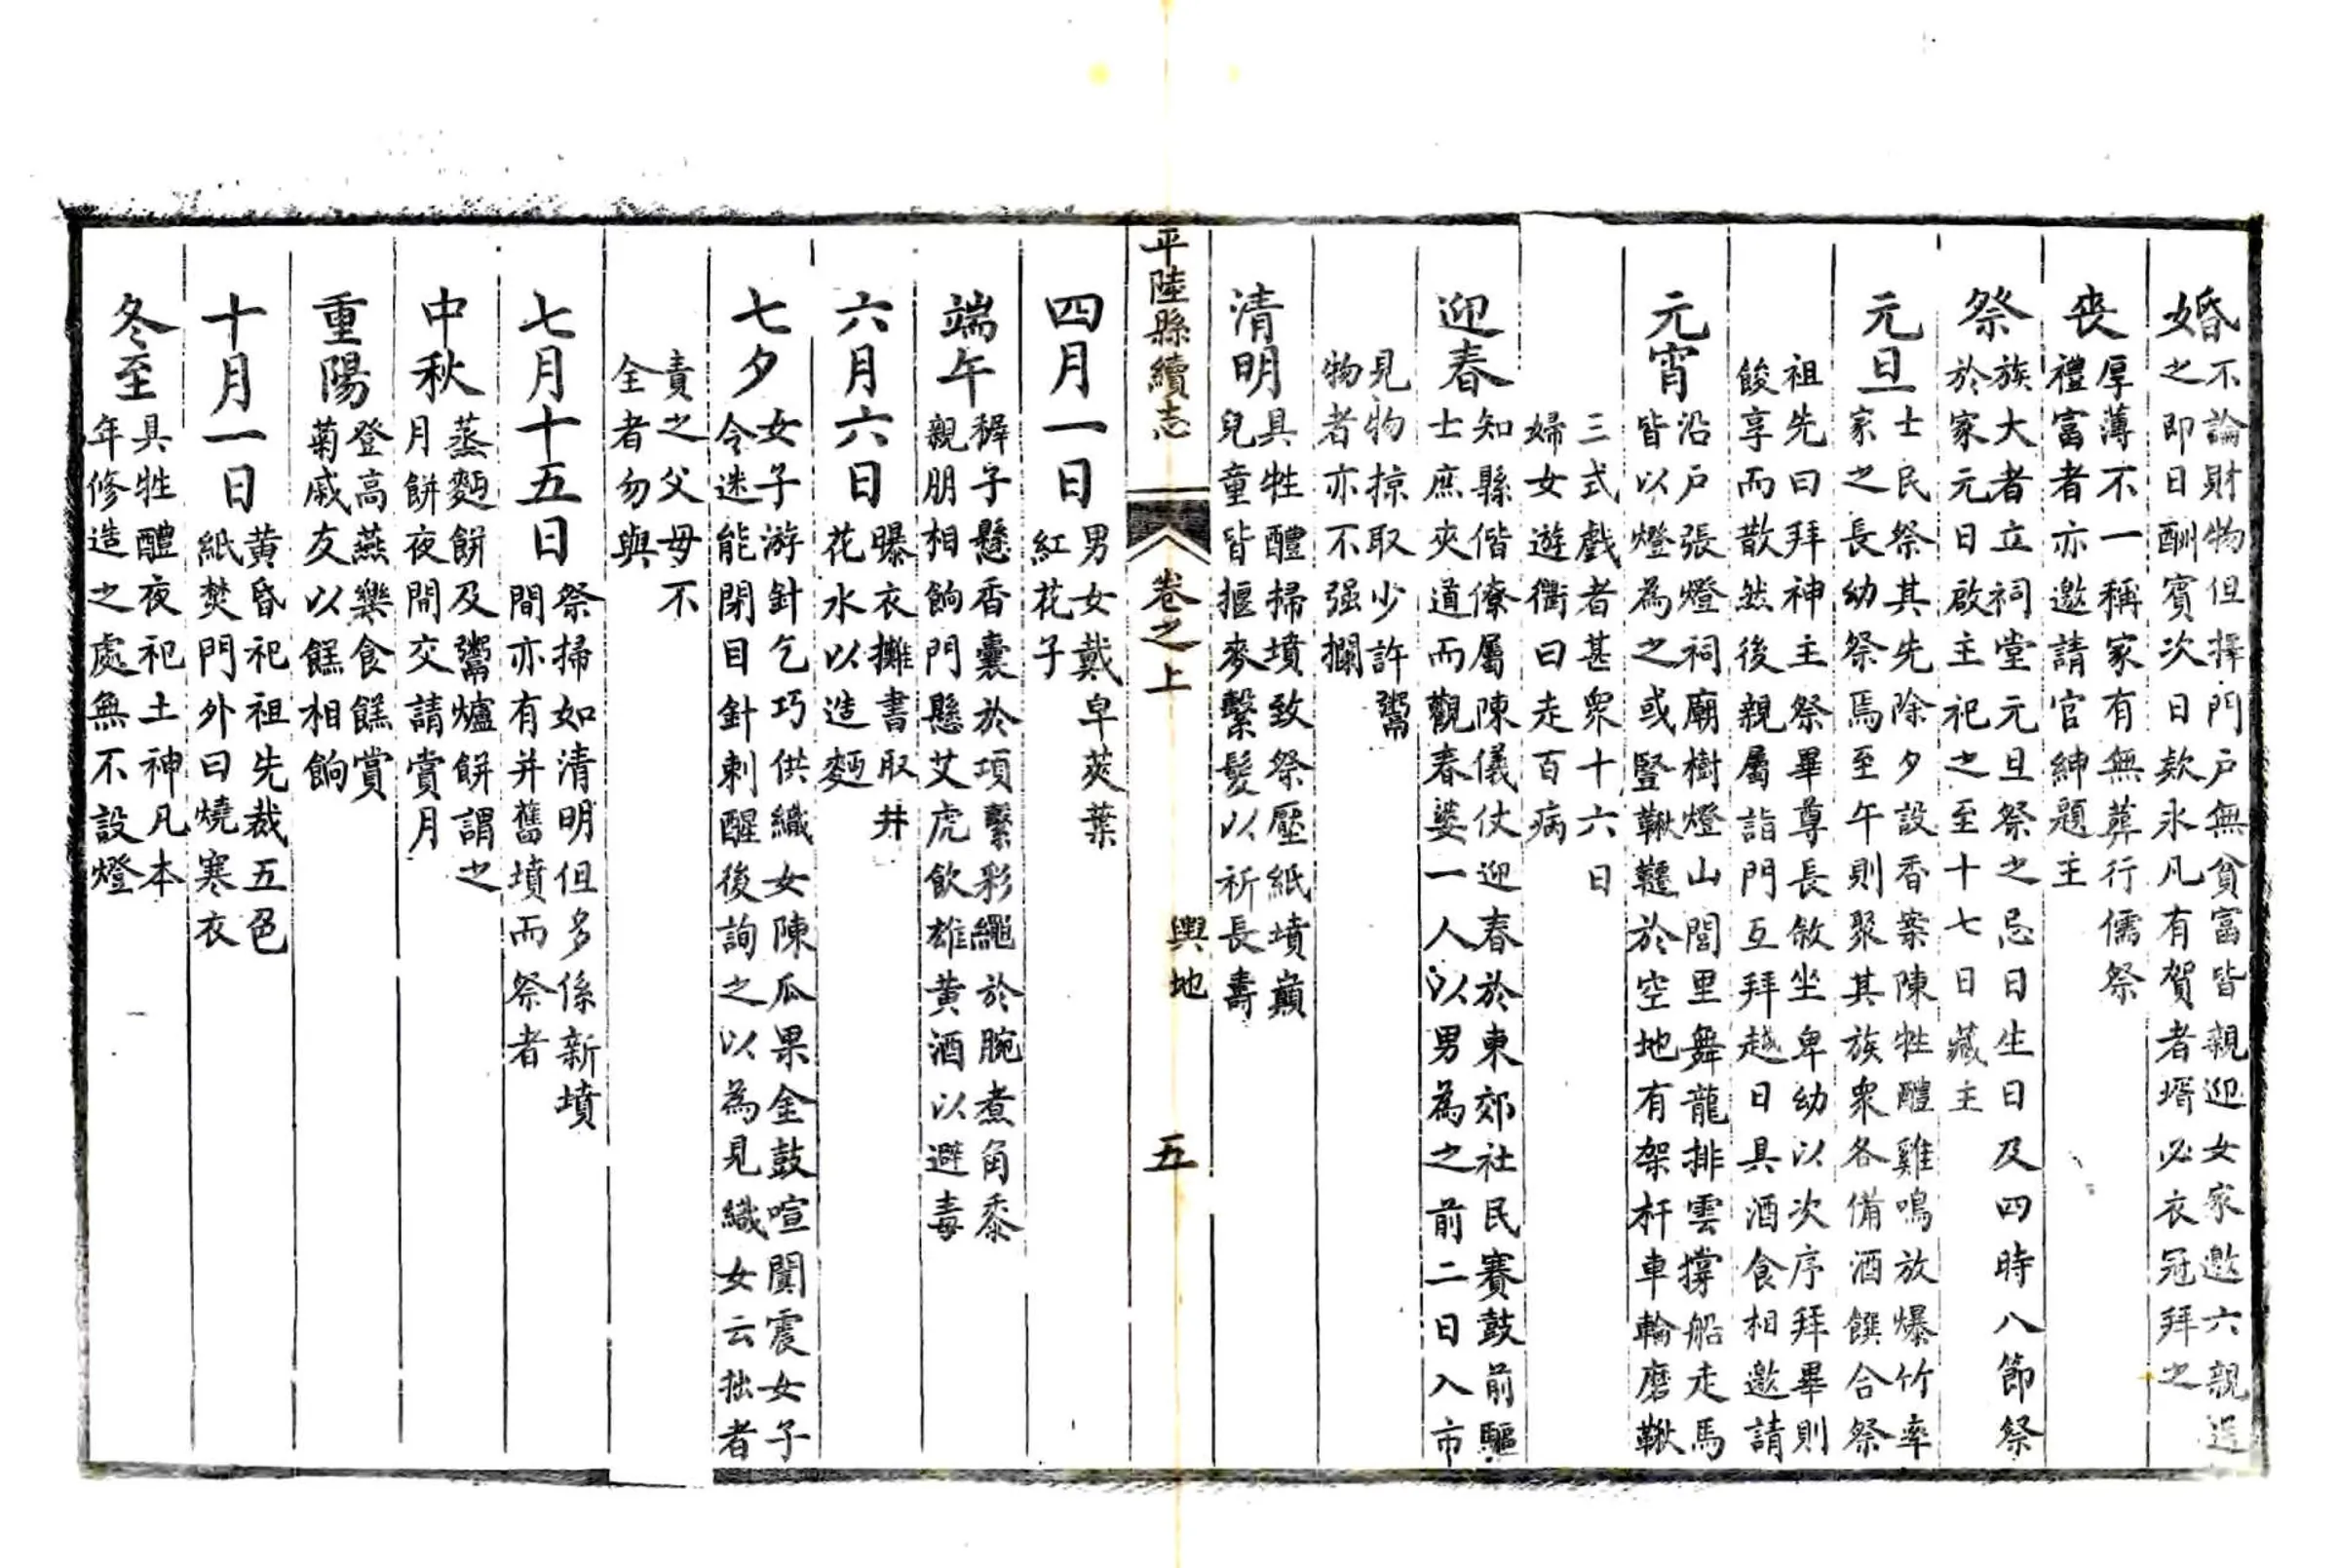 婚
不論財物但擇門戶無貧富皆親迎女家邀六親送
之即日酬賓次日欵氷凡有賀者壻必衣冠拜之
喪
厚薄不一稱家有無葬行儒祭
禮富者亦邀請官紳題主
祭
族大者立祠堂元旦祭之忌日生日及四時八節祭
於家元日啟主祀之至十七日藏主
元旦
士民祭其先除夕設香案陳牲醴雞鳴放爆竹率
家之長幼祭焉至午則聚其族衆各備酒饌合祭
祖先曰拜神主祭畢尊長敘坐卑幼以次序拜畢則
餕享而散然後親屬詣門互拜越日具酒食相邀請
元宵
沿戶張燈祠廟樹燈山閭里舞龍排雲撐船走馬
皆以燈為之或豎鞦韆於空地有架杆車輪磨鞦
三式戲者甚衆十六日
婦女遊衢曰走百病
迎春
知縣偕僚屬陳儀仗迎春於東郊社民賽鼓前驅
士庶夾道而觀春婆一人以男為之前二日入市
見物掠取少許鬻
物者亦不强攔
清明
具牲醴掃墳致祭壓紙墳巔
兒童皆摳麥繫髮以祈長壽
平陸縣續志
卷之上
輿地
五
四月一日
男女戴皁莢葉
紅花子
端午
稺子懸香囊於項繫彩繩於腕煮角黍
親朋相餉門懸艾虎飲雄黃酒以避毒
六月六日
曝衣攤書取井
花水以造麪
七夕
女子游針乞巧供織女陳瓜果金鼓喧闐震女子
令迷能閉目針刺醒後詢之以為見織女云拙者
責之父毋不
全者勿與
七月十五日
祭掃如清明但多係新墳
間亦有并舊墳而祭者
中秋
蒸麪餅及鬻爐餅謂之
月餅夜間交請賞月
重陽
登高燕樂食餻賞
菊戚友以餻相餉
十月一日
黃昏祀祖先裁五色
紙焚門外曰燒寒衣
冬至
具牲醴夜祀土神凡本
年修造之處無不設燈